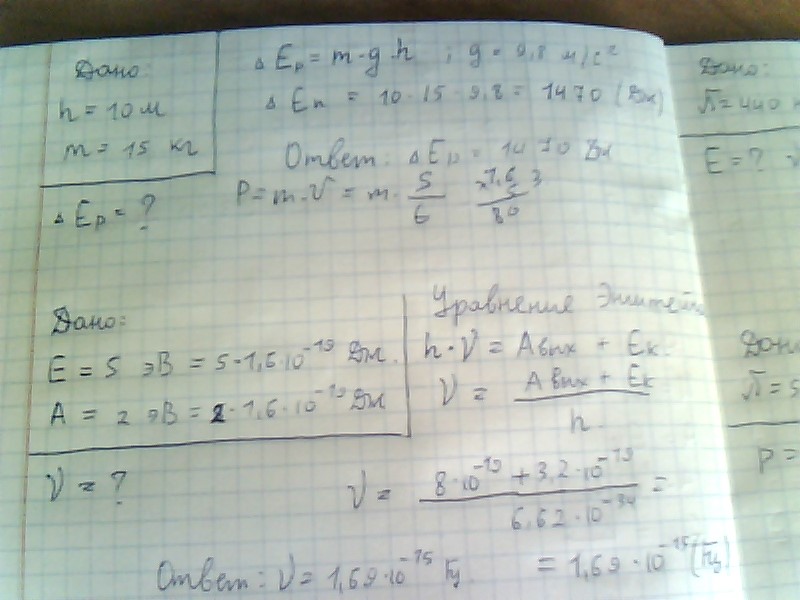 Дано:
h = 10 м
m = 15 кг
Δ Ep = ?
Δ Ep = m·g·h ; g = 9,8 м/с²
Δ En = 10·15·9,8 = 1470 (Дж)
Ответ: Δ Ep = 1470 Дж
P = m·V = m· 5/6
80
Дано:
E = 5 эВ = 5·1,6·10⁻¹⁹ Дж.
A = 2 эВ = 2·1,6·10⁻¹⁹ Дж
ν = ?
Уравнение Энштей
h·ν = Aвых + Eк.
ν = Aвых + Eк / h.
ν = 8·10⁻¹⁹ + 3,2·10⁻¹⁹ / 6,62·10⁻³⁴ =
= 1,69·10⁻¹⁵ (Гц)
Ответ: ν = 1,69·10⁻¹⁵ Гц
Дано:
λ = 440
E = ?
Дано
λ = 5
P =